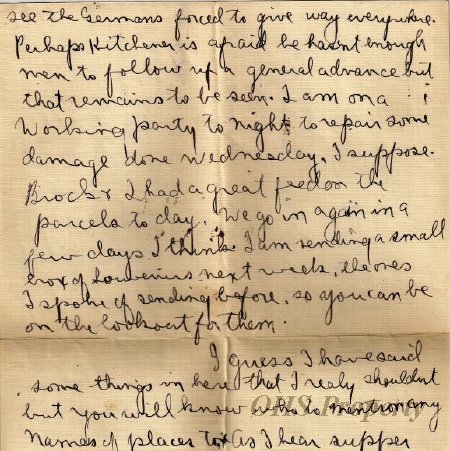 see the Germans forced to give way everywhere.
Perhaps Kitchener is afraid he hasnt enough
men to follow up a general advance but
that remains to be seen. I am on a
Working party to night to repair some
damage done Wednesday, I suppose.
Brock & I had a great feed on the
parcels to day. We go in again in a
few days I think. I am sending a small
box of souvenirs next week, the ones
I spoke of sending before, so you can be
on the lookout for them.
I guess I have said
some things in here that I realy shouldnt
but you will know who to mention any
Names of places to. As I hear supper
OHS Property